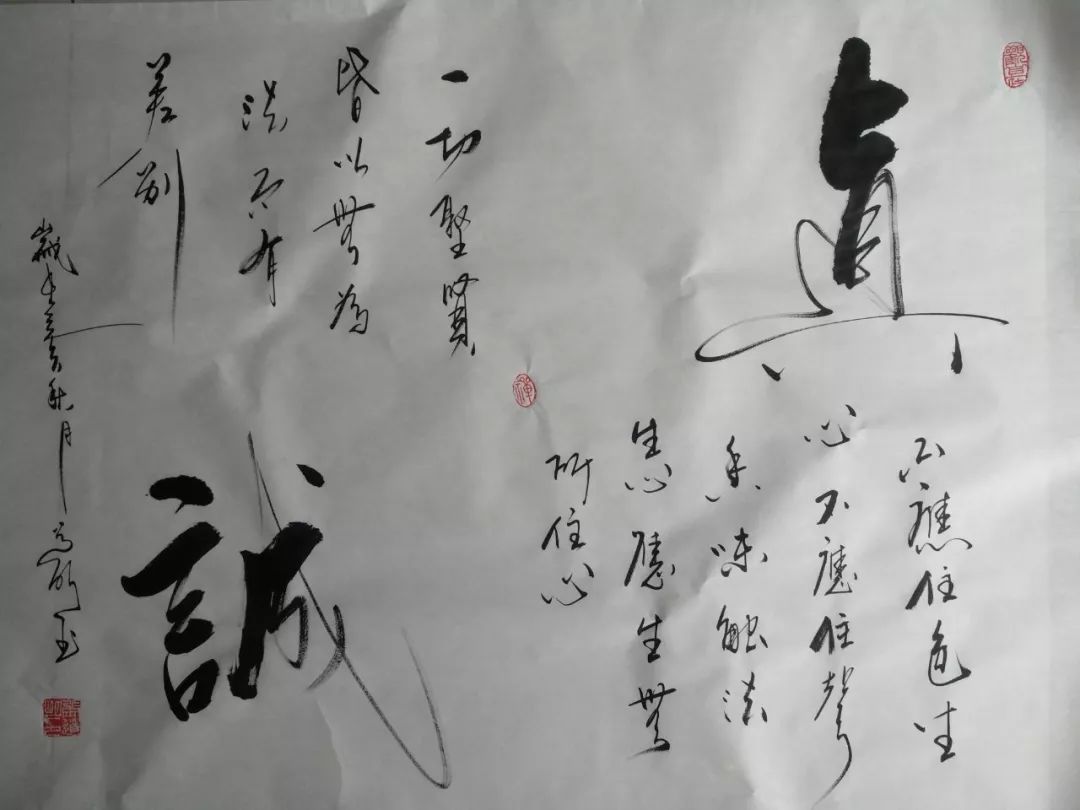 真
不應住色生
心不應住聲
香味触法
生心應生無
所住心
禅
一切聖賢
皆以無為
法而有
差別
誠
歲在 亥秋月